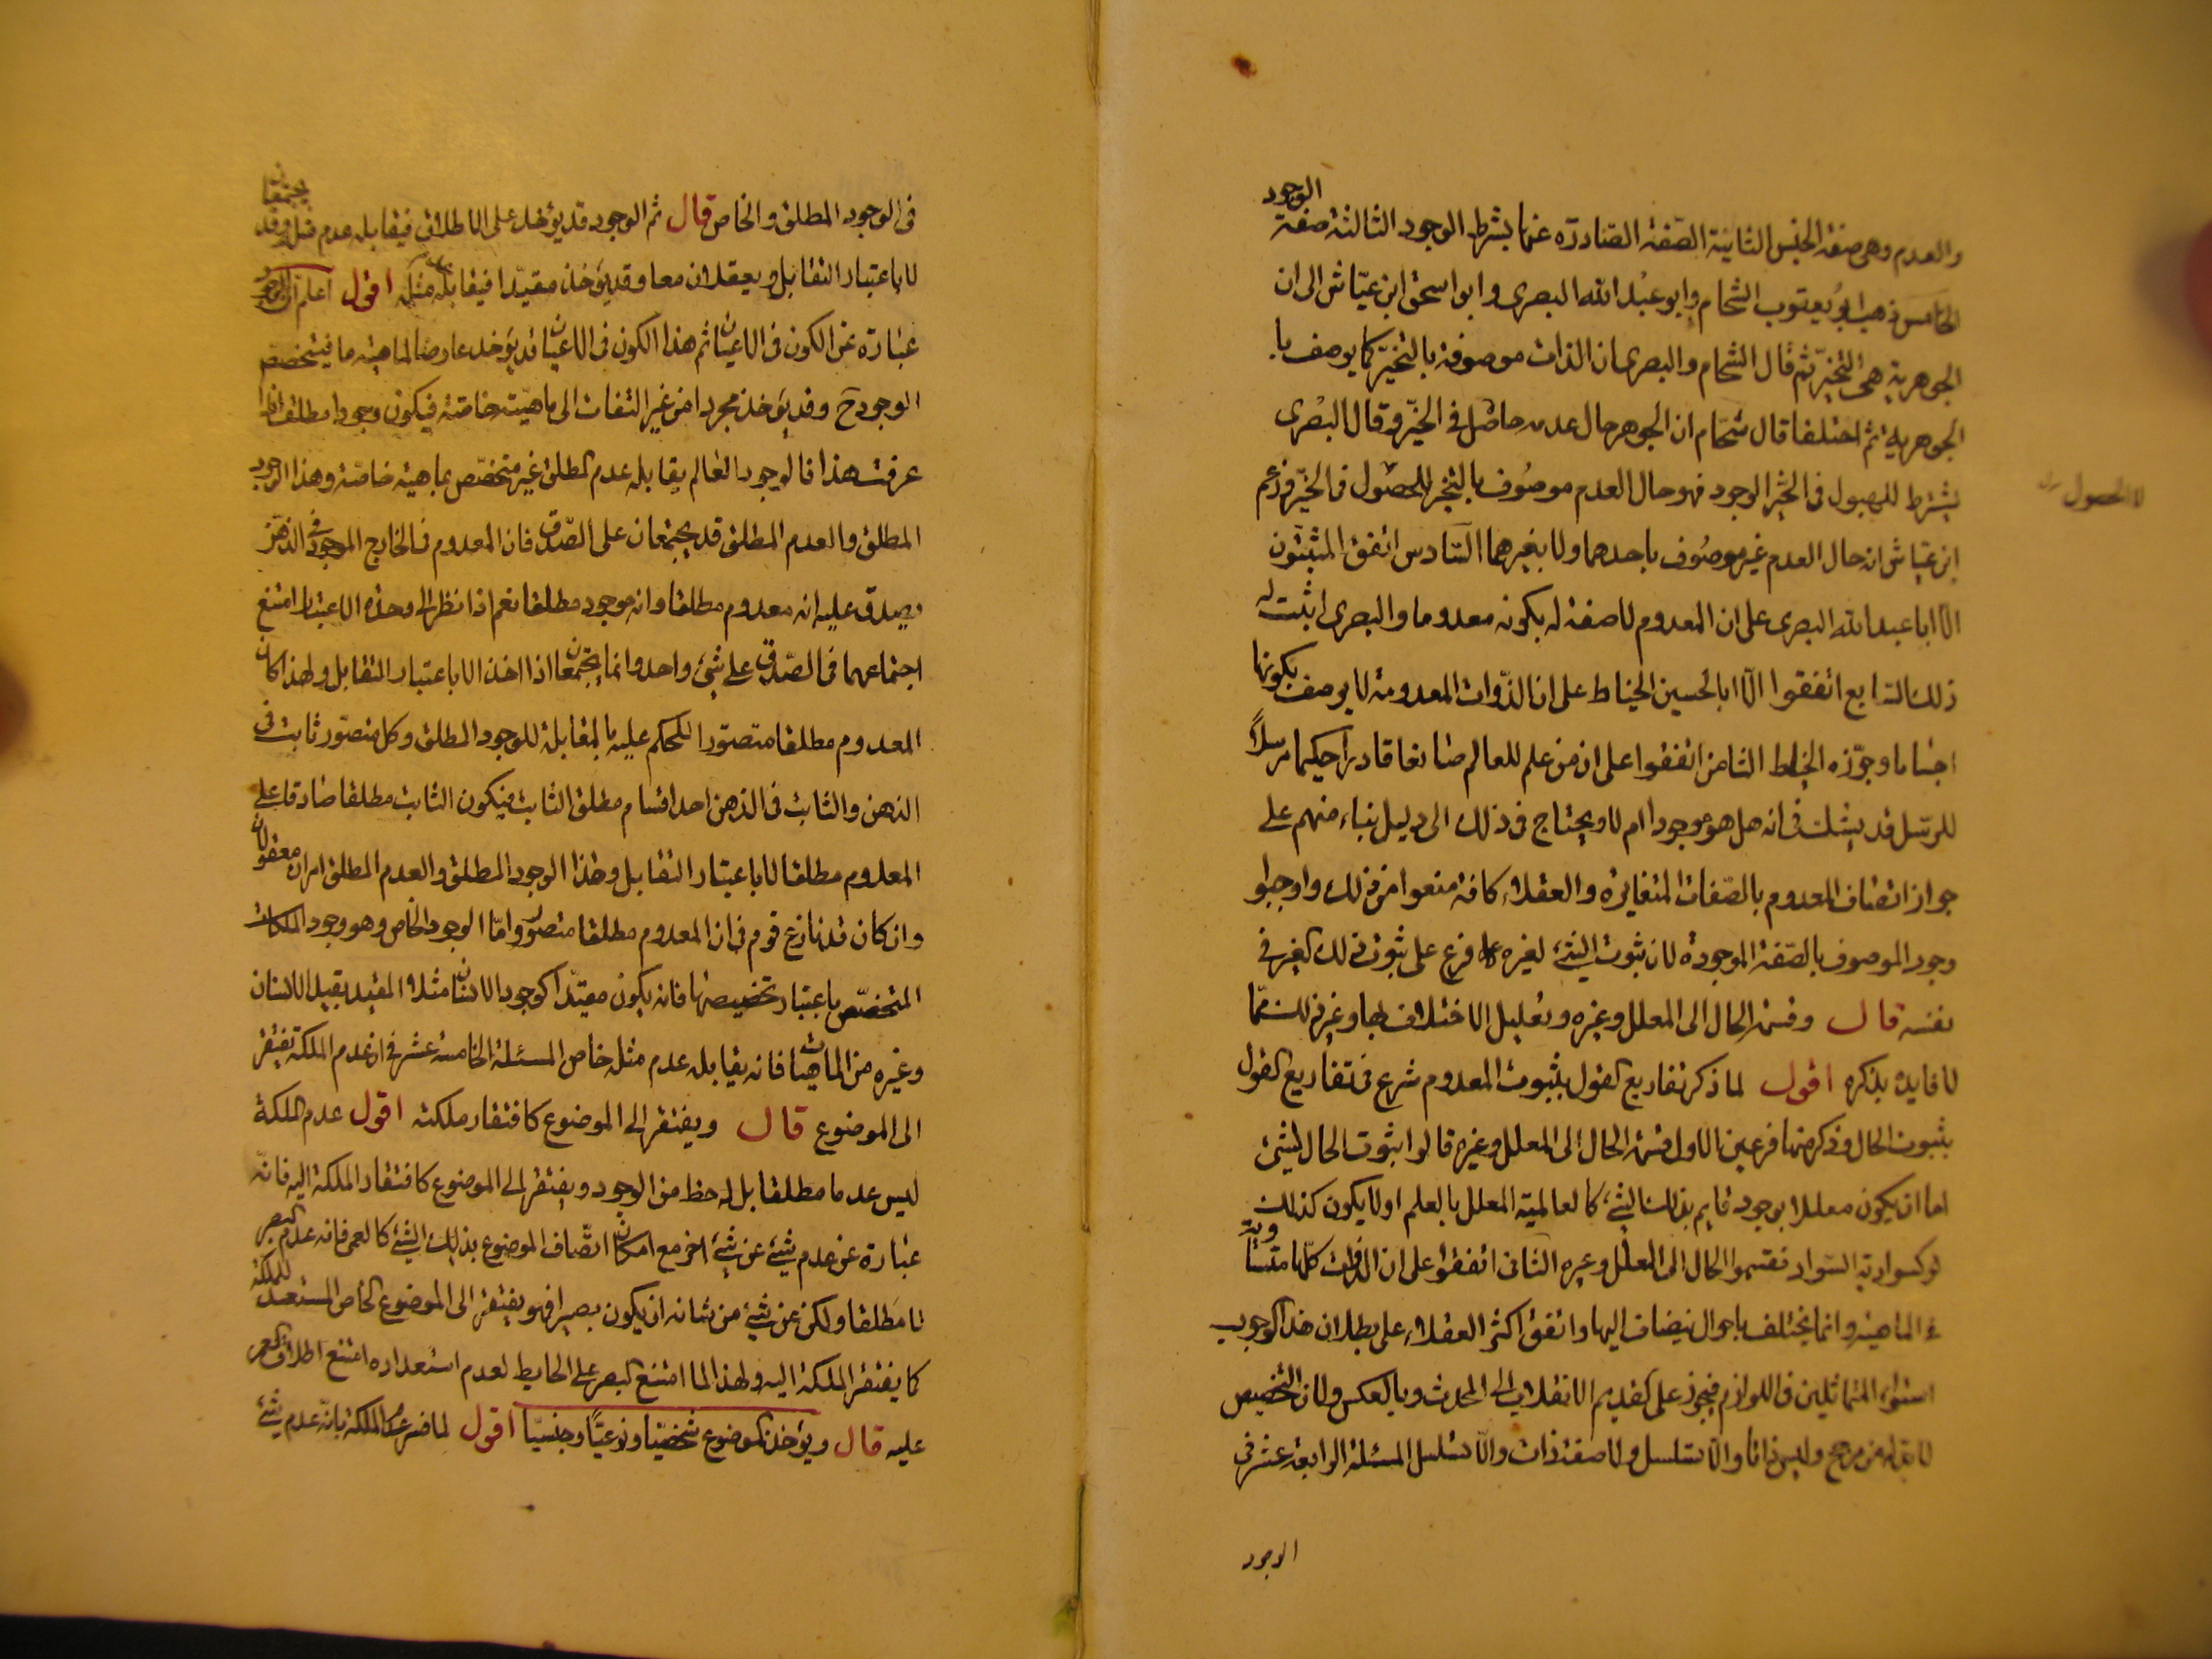 والعدم وهى صفة الجنس الثانية الصّفة الصّادرة عنها بشرط الوجود الثالثة صفة الوجود
الخامس ذهب ابو يعقوب الشحام وابو عبد الله البصرى وابو اسحق ابن عيّاش الى ان
الجوهرية هى التحيّز ثم قال الشحام والبصرى ان الذات موصوفة بالتحيّز كما يوصف با
الجوهرية ثم اختلفا قال شحام ان الجوهر حال عدمه حاصل فى الحيّز وقال البصرى
بشرط الحصول فى الحيّز الوجود فهو حال العدم موصوف بالتحيز لا الحصول فى الحيّز وزعم
ابن عيّاش انه حال العدم غير موصوف باحدهما ولا بغيرهما السّادس اتفق المثبتون
الا ابا عبد الله البصرى على ان المعدوم لا صفة له بكونه معدوما والبصرى اثبت له
ذلك السّابع اتفقوا الّا ابا الحسين الخياط على ان الذّوات المعدومة لا يوصف بكونها
اجساما وجوّزه الخياط الثامن اتفقوا على ان من علم للعالم صانعا قادرا حكيما مرسلاً
للرّسل قد يشك فى انه هل هو موجودا ام لا ويحتاج فى ذلك الى دليل بناء منهم على
جواز اتصاف المعدوم بالصّفات المتغايرة والعقلاء كافة منعوا من ذلك واوجبوا
وجود الموصوف بالصّفة الموجودة لان ثبوت الشئ لغيره فرع على ثبوت ذلك الغير فى
نفسه قال وقسمة الحال الى المعلل وغيره وتعليل الاختلاف بها وغير ذلك ممّا
لا فايدة بذكره اقول لما ذكر تفاريع القول بثبوت المعدوم شرع فى تفاريع القول
بثبوت الحال وذكر منها فرعين الاول قسمة الحال الى المعلل وغيره قالوا ثبوت الحال لشئ
اما ان يكون معللا بوجود قايم بذلك الشئ كالعالمية المعلل بالعلم او لا يكون كذلك
كوسوادية السّواد فقسموا الحال الى المعلل وغيره الثانى اتفقوا على ان الذوات كلّها متساوية
فى الماهية وانما يختلف باحوال يضاف اليها واتفق اكثر العقلاء على بطلان هذا لوجوب
استواء المتماثلين فى اللوازم فيجوز على القديم الانقلاب الى المحدث وبالعكس ولان التخصيص
لا بدّ له من مرجح وليس ذاتا والّا تسلسل ولا صفة ذات والّا تسلسل المسئلة الرابعة عشر فى
الوجود
لا الحصول
فى الوجود المطلق والخاص قال ثم الوجود قد يؤخذ على الاطلاق فيقابله عدم مثله وقد يجتمعان
لا باعتبار التقابل ويعقلان معا وقد يؤخذ مقيّدا فيقابله مثله اقول اعلم ان الوجود
عبارة عن الكون فى الاعيان ثم هذا الكون فى الاعيان قد يؤخذ عارضا لماهية ما فيتخصّص
الوجود ح وقد يؤخذ مجردا من غير التفات الى ماهيّة خاصّة فيكون وجودا مطلقا اذا
عرفت هذا فالوجود العالم يقابله عدم مطلق غير متخصّص بماهية خاصّة وهذا الوجود
المطلق والعدم المطلق قد يجتمعان على الصّدق فان المعدوم فى الخارج الموجود فى الذهن
يصدق عليه انه معدوم مطلقا وانه موجود مطلقا نعم اذا نظر الى وحدة الاعتبار امتنع
اجتماعهما فى الصّدق على شئ واحد وانما يجتمعان اذا اخذ لا باعتبار التقابل ولهذا كان
المعدوم مطلقا متصوّرا للحكم عليه بالمقابلة للوجود المطلق وكل متصوّر ثابت فى
الذهن والثابت فى الذهن احد اقسام مطلق الثابت فيكون الثابت مطلقا صادقا على
المعدوم مطلقا لا باعتبار التقابل وهذا الوجود المطلق والعدم المطلق امران معقولان
وان كان قد نازع قوم فى ان المعدوم مطلقا متصوّر وامّا الوجود الخاص وهو وجود الملكات
المتخصّص باعتبار تخصيصها فانه يكون مقيّدا كوجود الانسان مثلا المقيد بقيد الانسان
وغيره من الماهيات فانه يقابله عدم مثله خاص المسئلة الخامسة عشر فى ان عدم الملكة تفتقر
الى الموضوع قال ويفتقر الى الموضوع كافتقار ملكته اقول عدم الملكة
ليس عدما مطلقا بل له حظ من الوجود ويفتقر الى الموضوع كافتقار الملكة اليه فانّه
عبارة عن عدم شئ عن شئ اخر مع امكان اتّصاف الموضوع بذلك الشئ كالعمى فانه عدم البصر
لا مطلقا ولكن عن شئ من شانه ان يكون بصيرا فهو يفتقر الى الموضوع الخاص المستعد للملكة
كما يفتقر الملكة اليه ولهذا لما امتنع البصر على الحايط لعدم استعداده امتنع اطلاق العمى
عليه قال ويؤخذ الموضوع شخصيّا ونوعيّا وجنسيّا اقول لما فسر عدم الملكة بانّه عدم شئ